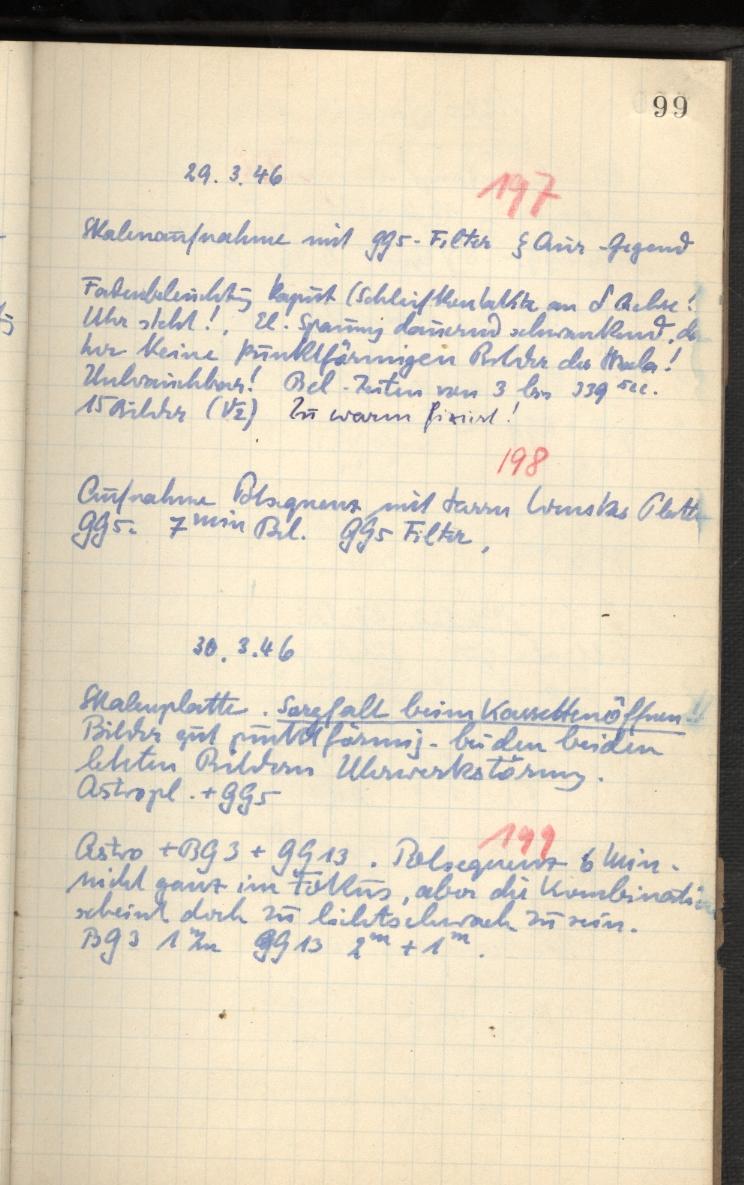 99
29. 3. 46
197
Skalenaufnahme mit GG5-Filter ξ Aur-Gegend
Fadenbeleuchtg kaput (Schleifkontakte an δ Achse!
Uhr steht!, El. Spanung dauernd schwankend, da-
her keine punktförmigen Bilder der Skala!
Unbrauchbar! Bel-Zeiten von 3 bis 339 sec.
15 Bilder (√2) Zu warm fixiert!
198
Aufnahme Polsequenz mit Herrn Platte
GG5. 7 min Bel. GG5 Filter,
30. 3. 46
Skalenplatte. Sorgfalt beim Kassettenöffnen!!
Bilder gut punktförmig - bei den beiden
letzten Bildern Uhrwerkstörung.
Astropl. + GG5
199
Astro + BG3 + GG13. Polsequenz 6 Min.
nicht ganz im Fokus, aber die Kombination
scheint doch zu lichtschwach zu sein.
BG3 1 mm GG13 2m + 1m.